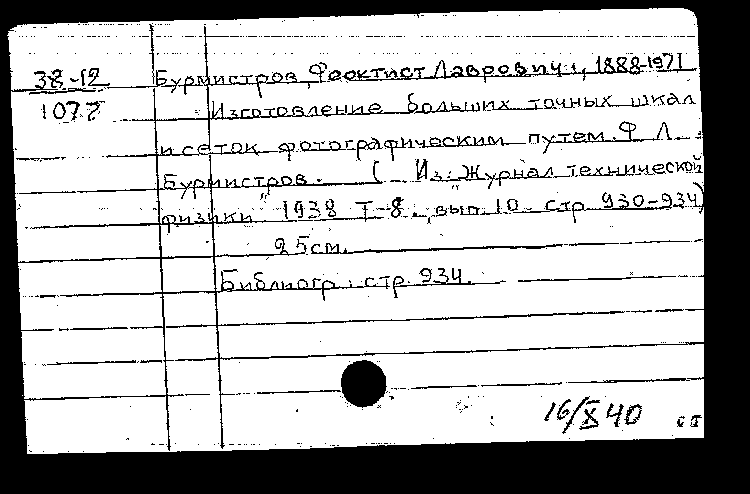 38-12 Бурмистров, Феоктист Лаврович, 1888-1971
1077 Изготовление больших точных шкал
и сеток фотографическим путем. Ф. Л.
Бурмистров. ( Из: "Журнал технической
физики" 1938 Т-8. вып. 10. стр. 930-934)
25см.
Библиогр: стр. 934.
16/X 40